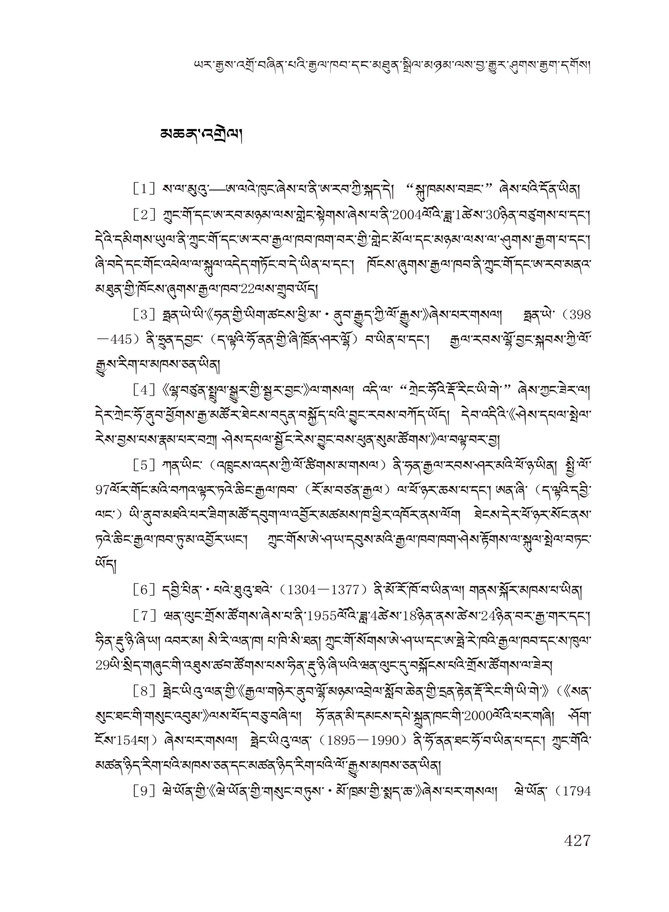 ཡར་རྒྱས་འགྲོ་བཞིན་པའི་རྒྱལ་ཁབ་དང་མཐུན་སྒྲིལ་མཉམ་ལས་བྱ་རྒྱུར་ཤུགས་རྒྱག་དགོས།
མཆན་འགྲེལ།
［1］ས་ལ་མུའུ་—ཨ་ལའེ་ཁུང་ཞེས་པ་ནི་ཨ་རབ་ཀྱི་སྐད་དེ། “སྐུ་ཁམས་བཟང་” ཞེས་པའི་དོན་ཡིན།
［2］ཀྲུང་གོ་དང་ཨ་རབ་མཉམ་ལས་གླེང་སྟེགས་ཞེས་པ་ནི་2004ལོའི་ཟླ་1ཚེས་30ཉིན་བཙུགས་པ་དང་།
དེའི་དམིགས་ཡུལ་ནི་ཀྲུང་གོ་དང་ཨ་རབ་རྒྱལ་ཁབ་ཁག་བར་གྱི་གླེང་མོལ་དང་མཉམ་ལས་ལ་ཤུགས་རྒྱག་པ་དང་།
ཞི་བདེ་དང་གོང་འཕེལ་ལ་སྐུལ་འདེད་གཏོང་བ་དེ་ཡིན་པ་དང་། ཁོངས་ཞུགས་རྒྱལ་ཁབ་ནི་ཀྲུང་གོ་དང་ཨ་རབ་མནའ་
མཐུན་གྱི་ཁོངས་ཞུགས་རྒྱལ་ཁབ་22ལས་གྲུབ་ཡོད།
［3］ཧྥན་ཡེ་ཡི་《ཧན་གྱི་ཡིག་ཚངས་ཕྱི་མ་·ནུབ་རྒྱུད་ཀྱི་ལོ་རྒྱུས་》ཞེས་པར་གསལ། ཧྥན་ཡེ་（398
—445）ནི་ཧྲུན་དབྱང་（ད་ལྟའི་ཧོ་ནན་གྱི་ཞི་ཁྲོན་ཤར་ལྷོ）བ་ཡིན་པ་དང་། རྒྱལ་རབས་ལྷོ་བྱང་སྐབས་ཀྱི་ལོ་
རྒྱུས་རིག་པ་མཁས་ཅན་ཡིན།
［4］《ལྷ་བཙུན་སྤྲུལ་སྒྱུར་གྱི་སྦྱར་བྱང་》ལ་གསལ། འདི་ལ་ “ཀྲེང་ཧོའི་རྡོ་རིང་ཡི་གེ་” ཞེས་ཀྱང་ཟེར་ལ།
དེར་ཀྲེང་ཧོ་ནུབ་ཕྱོགས་རྒྱ་མཚོར་ཐེངས་བདུན་བསྐྱོད་པའི་བྱུང་རབས་བཀོད་ཡོད། དེབ་འདིའི་《ཤེས་དཔལ་སྤེལ་
རེས་བྱས་པས་རྣམ་པར་བཀྲ། ཤེས་དཔལ་སློང་རེས་བྱུང་བས་ཕུན་སུམ་ཚོགས་》ལ་བལྟ་བར་བྱ།
［5］ཀན་ཡིང་（འཁྲུངས་འདས་ཀྱི་ལོ་ཚིགས་མ་གསལ）ནི་ཧན་རྒྱལ་རབས་ཤར་མའི་ཕོ་ཉ་ཡིན། སྤྱི་ལོ་
97ལོར་གོང་མའི་བཀའ་ལྟར་ཏའི་ཆིང་རྒྱལ་ཁབ་（རོ་མ་བཙན་རྒྱལ）ལ་ཕོ་ཉར་ཆས་པ་དང་། ཨན་ཞི་（ད་ལྟའི་དབྱི་
ལང་）ཡི་ནུབ་མཐའི་པར་ཟིག་མཚོ་དབུག་ལ་འབྱོར་མཚམས་ཁ་ཕྱིར་འཁོར་ནས་ལོག ཐེངས་དེར་ཕོ་ཉར་སོང་ནས་
ཏའི་ཆིང་རྒྱལ་ཁབ་ཏུ་མ་འབྱོར་ཡང་། ཀྲུང་གོས་ཨེ་ཤ་ཡ་དབུས་མའི་རྒྱལ་ཁབ་ཁག་ཤེས་རྟོགས་ལ་སྐུལ་སྤེལ་བཏང་
ཡོད།
［6］དབྱི་པིན་·པའེ་ཐུའུ་ཐའེ་（1304—1377）ནི་མོ་རོ་ཁོ་བ་ཡིན་ལ། གནས་སྐོར་མཁས་པ་ཡིན།
［7］ཝན་ལུང་གྲོས་ཚོགས་ཞེས་པ་ནི་1955ལོའི་ཟླ་4ཚེས་18ཉིན་ནས་ཚེས་24ཉིན་བར་རྒྱ་གར་དང་།
ཧིན་རྡུ་ཉི་ཞི་ཡ། འབར་མ། སི་རི་ལན་ཁ། པ་ཁི་སི་ཐན། ཀྲུང་གོ་སོགས་ཨེ་ཤ་ཡ་དང་ཨ་ཧྥེ་རི་ཁའི་རྒྱལ་ཁབ་དང་ས་ཁུལ་
29ཡི་སྲིད་གཞུང་གི་འཐུས་ཚབ་ཚོགས་པས་ཧིན་རྡུ་ཉི་ཞི་ཡའི་ཝན་ལུང་དུ་བསྐོངས་པའི་གྲོས་ཚོགས་ལ་ཟེར།
［8］ཧྥེང་ཡིའུ་ལན་གྱི་《རྒྱལ་གཉེར་ནུབ་ལྷོ་མཉམ་འབྲེལ་སློབ་ཆེན་གྱི་དྲན་རྟེན་རྡོ་རིང་གི་ཡི་གེ་》（《སན་
སུང་ཐང་གི་གསུང་འབུམ་》ལས་པོད་བཅུ་བཞི་པ། ཧོ་ནན་མི་དམངས་དཔེ་སྐྲུན་ཁང་གི་2000ལོའི་པར་གཞི། ཤོག་
ངོས་154པ།）ཞེས་པར་གསལ། ཧྥེང་ཡིའུ་ལན་（1895—1990）ནི་ཧོ་ནན་ཐང་ཧོ་བ་ཡིན་པ་དང་། ཀྲུང་གོའི་
མཚན་ཉིད་རིག་པའི་མཁས་ཅན་དང་མཚན་ཉིད་རིག་པའི་ལོ་རྒྱུས་མཁས་ཅན་ཡིན།
［9］ཝེ་ཡོན་གྱི་《ཝེ་ཡོན་གྱི་གསུང་བཏུས་·མོ་ཁྲམ་གྱི་སྨད་ཆ་》ཞེས་པར་གསལ། ཝེ་ཡོན་（1794
427